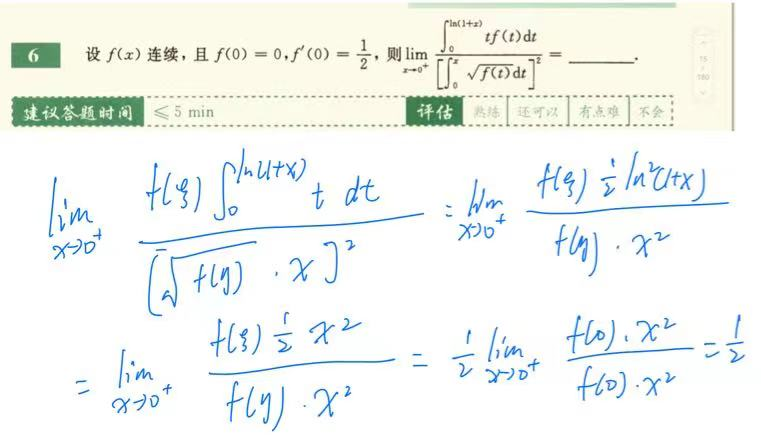 6 设 f(x) 连续，且 f(0) = 0, f′(0) = 1/2, 则 lim_{x→0⁺} ∫₀^{ln(1+x)} tf(t)dt / [∫₀^x √f(t) dt]² = ______.
15 / 180
建议答题时间 ≤ 5 min 评估 熟练 还可以 有点难 不会
lim_{x→0⁺} f(ξ) ∫₀^{ln(1+x)} t dt / [√f(y) · x]² = lim_{x→0⁺} f(ξ) 1/2 ln²(1+x) / f(y) · x²
= lim_{x→0⁺} f(ξ) 1/2 x² / f(y) · x² = 1/2 lim_{x→0⁺} f(0) · x² / f(0) · x² = 1/2